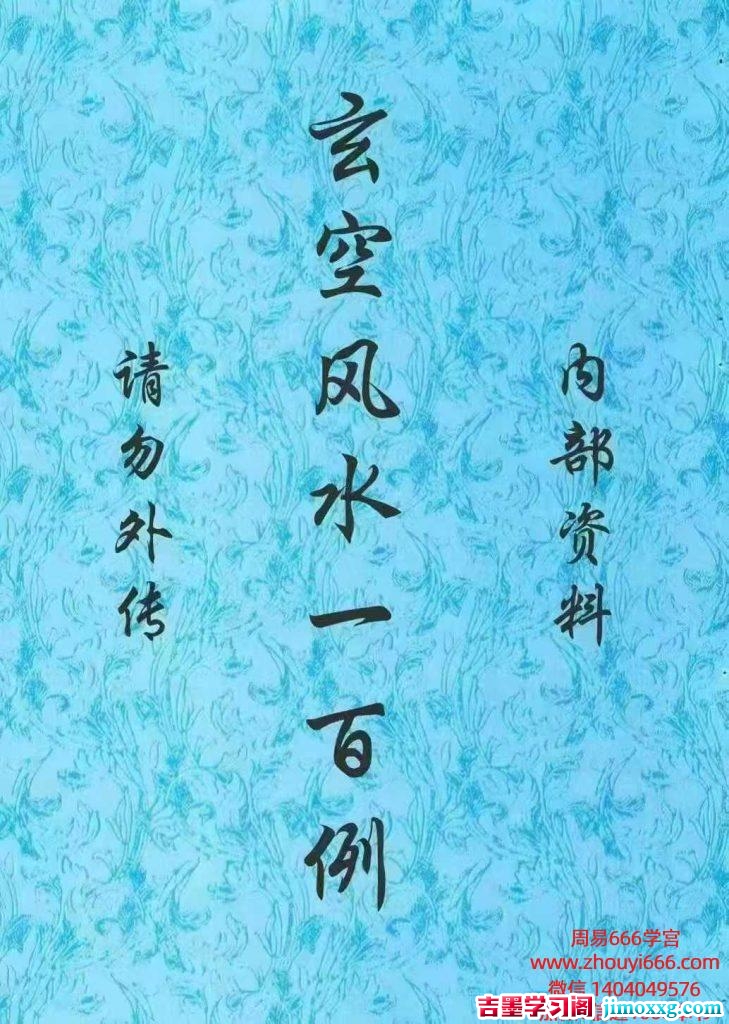 内部资料
玄空风水一百例
请勿外传
周易666学宫
www.zhouyi666.com
微信 1404049576
吉墨学习阁 jimoxxg.com